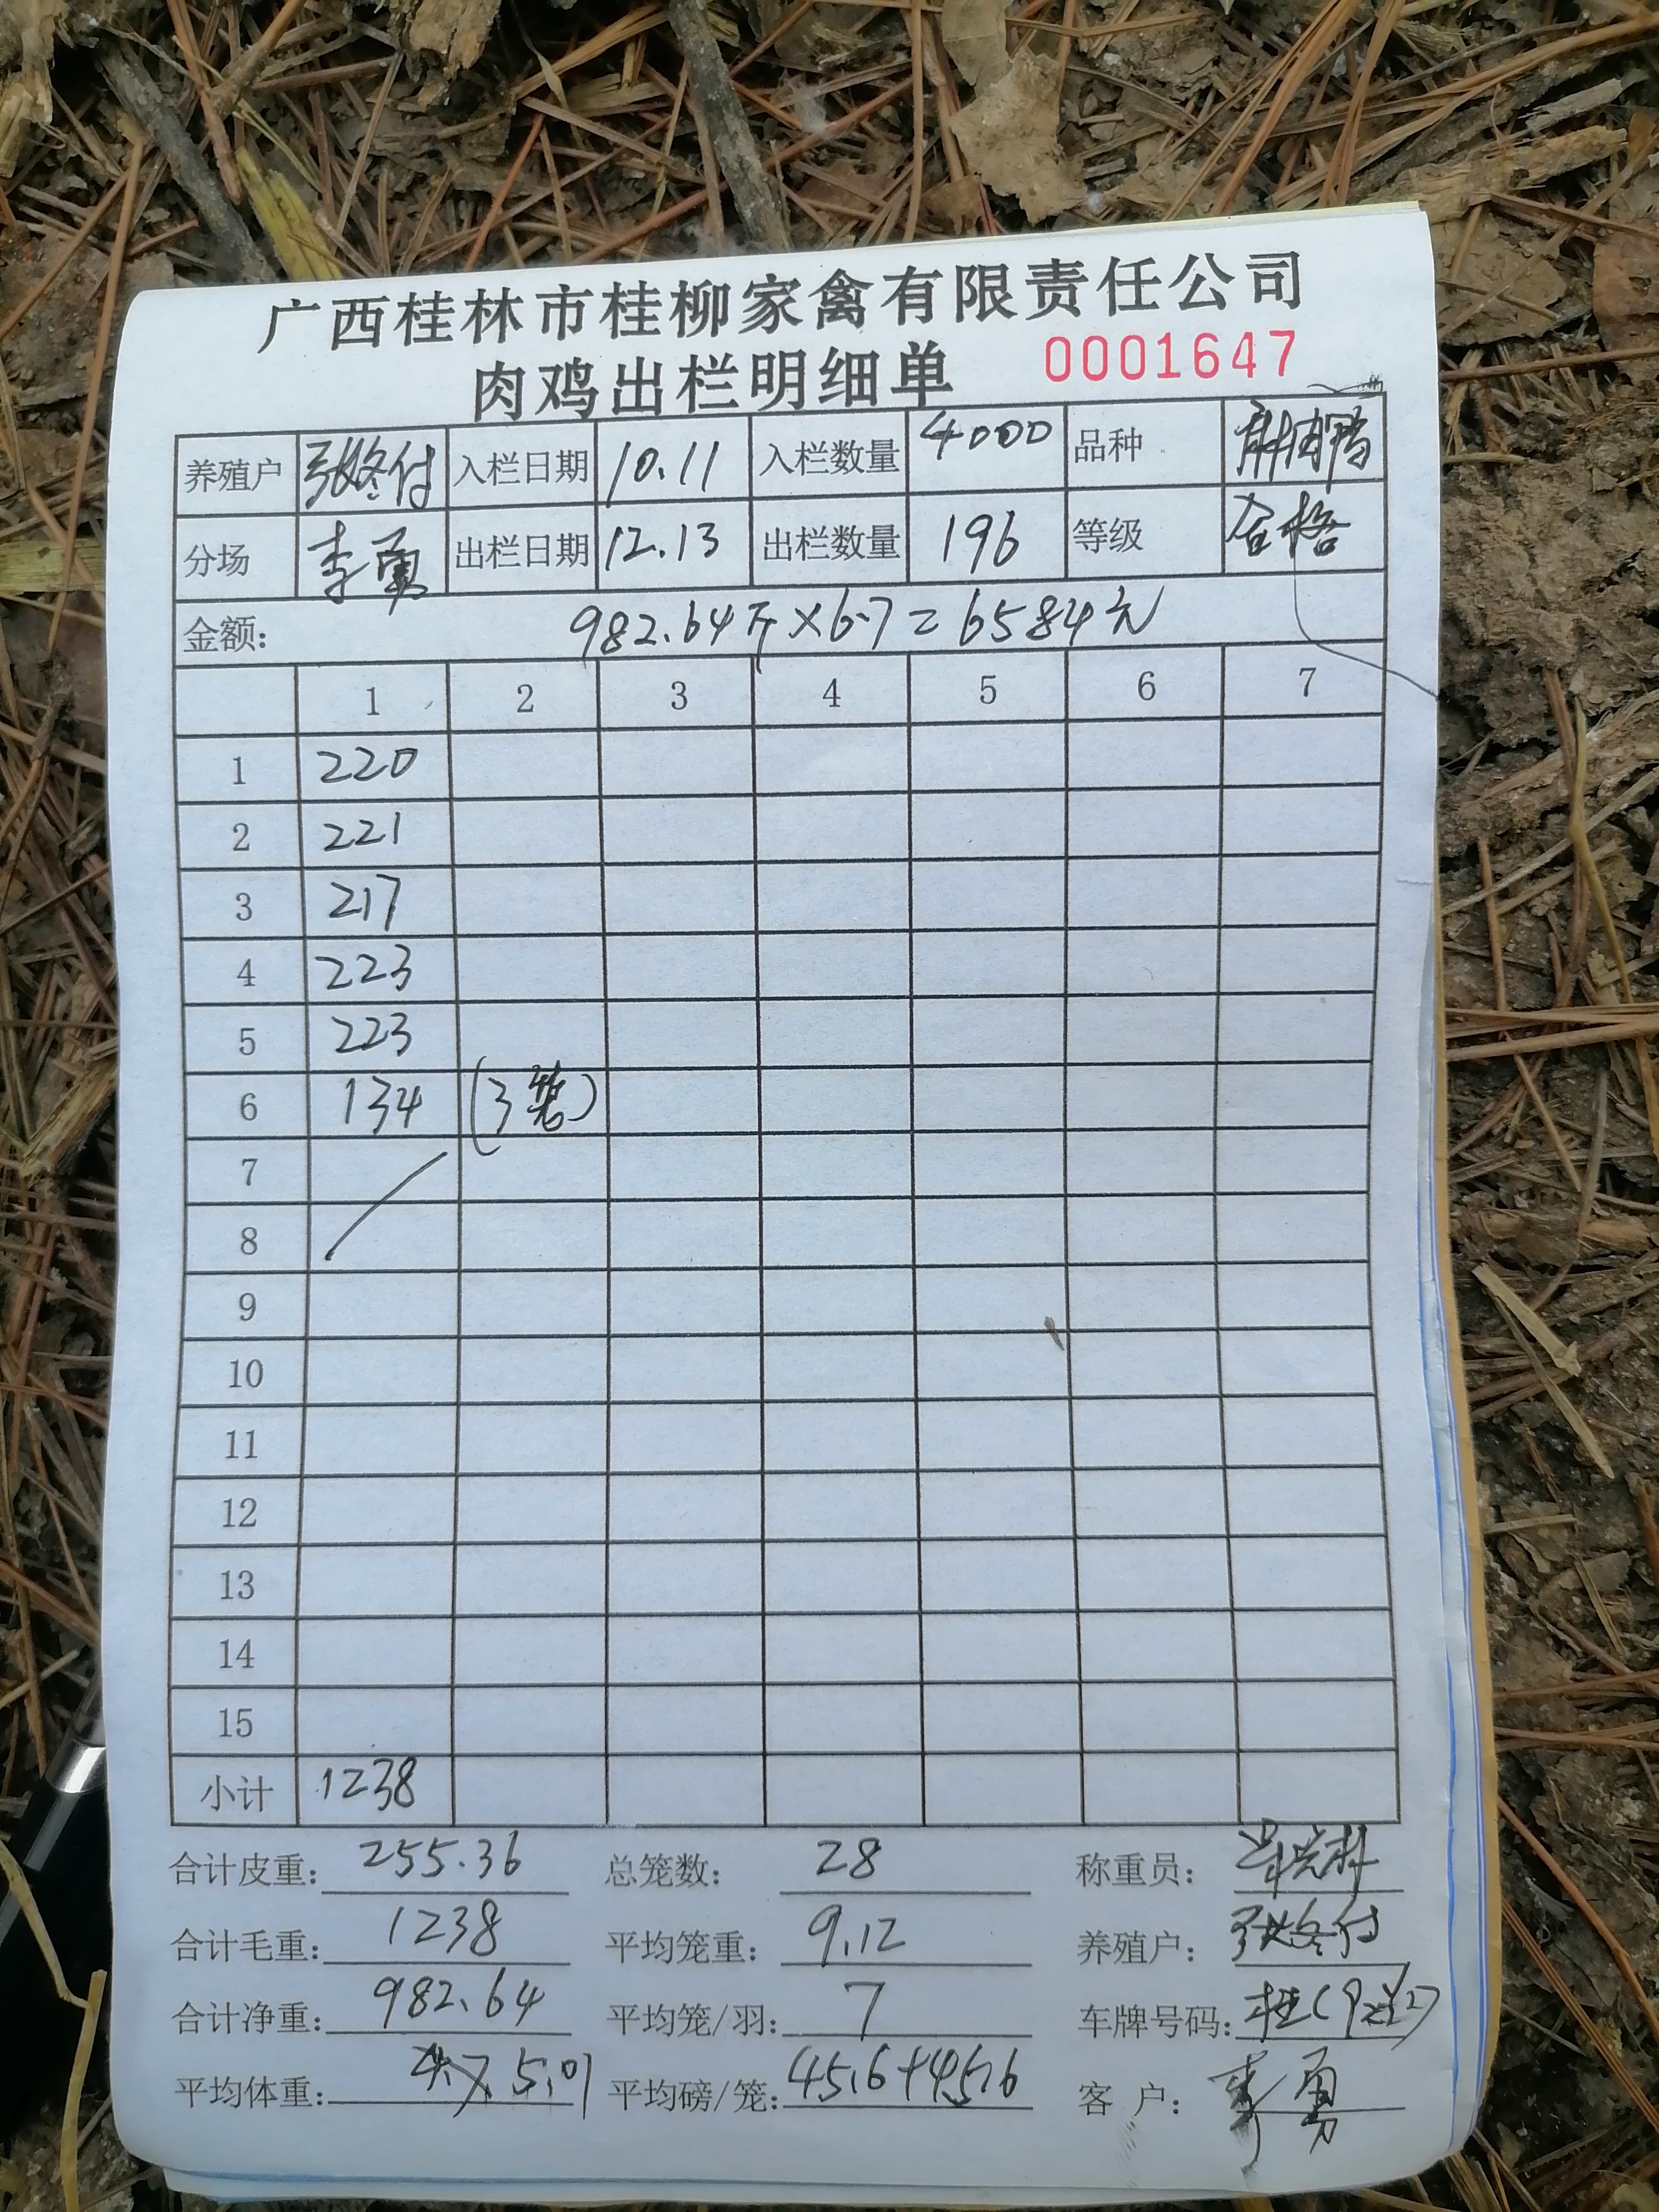 广西桂林市桂柳家禽有限责任公司
肉鸡出栏明细单 0001647
养殖户 张冬付 入栏日期 10.11 入栏数量 4000 品种 麻肉鸭
分场 李勇 出栏日期 12.13 出栏数量 196 等级 合格
金额: 982.64斤×6.7=6584元
1 2 3 4 5 6 7
1 220
2 221
3 217
4 223
5 223
6 134 (3笼)
7
8
9
10
11
12
13
14
15
小计 1238
合计皮重: 255.36 总笼数: 28 称重员:
合计毛重: 1238 平均笼重: 9.12 养殖户: 张冬付
合计净重: 982.64 平均笼/羽: 7 车牌号码: 桂
平均体重: 5.01 平均磅/笼: 45.6+45.6 客 户: 李勇